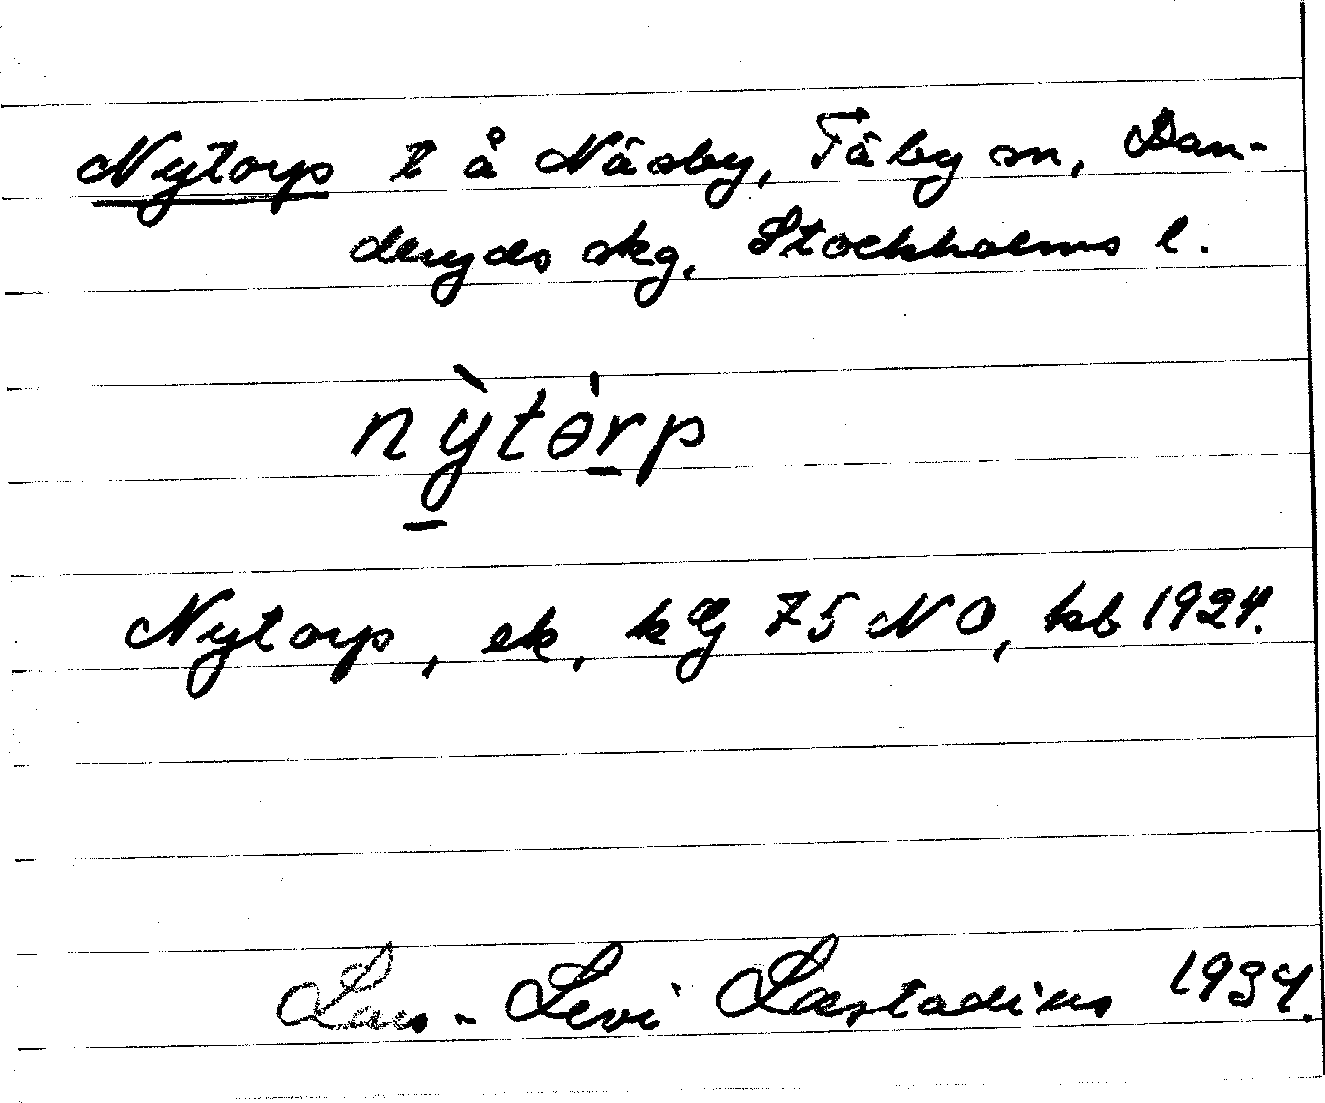 Nytorp t å Näsby, Täby sn, Dan-
deryds skg, Stockholms l.
nỳtɵ̀rp
Nytorp, ek, k 75 NO, kb 1924.
Lars-Levi Læstadius 1934.